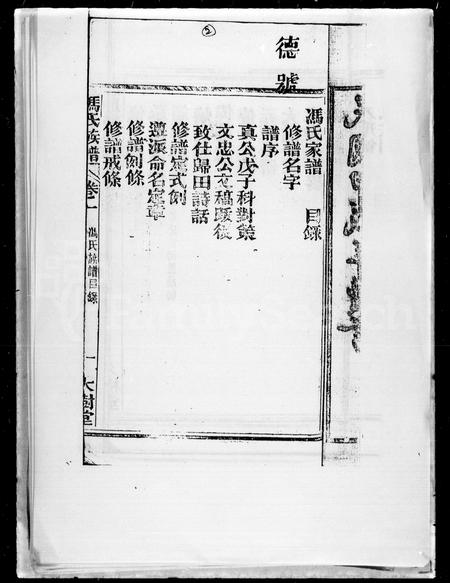 ②
德號
馮氏家譜 目錄
修譜名字
譜序
真公戊子科對策
文忠公文稿跋後
致仕歸田詩話
修譜定式例
遵派命名定章
修譜例條
修譜戒條
馮氏族譜 卷一 馮氏族譜目錄 一 大樹堂
FamilySearch